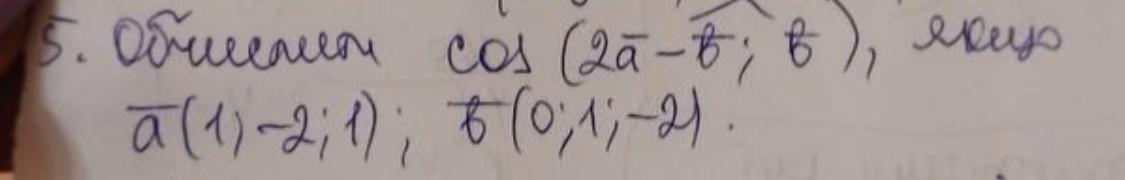 5. Обчислити cos (2a̅ - b̅; b̅), якщо
a̅(1; -2; 1); b̅(0; 1; -2).